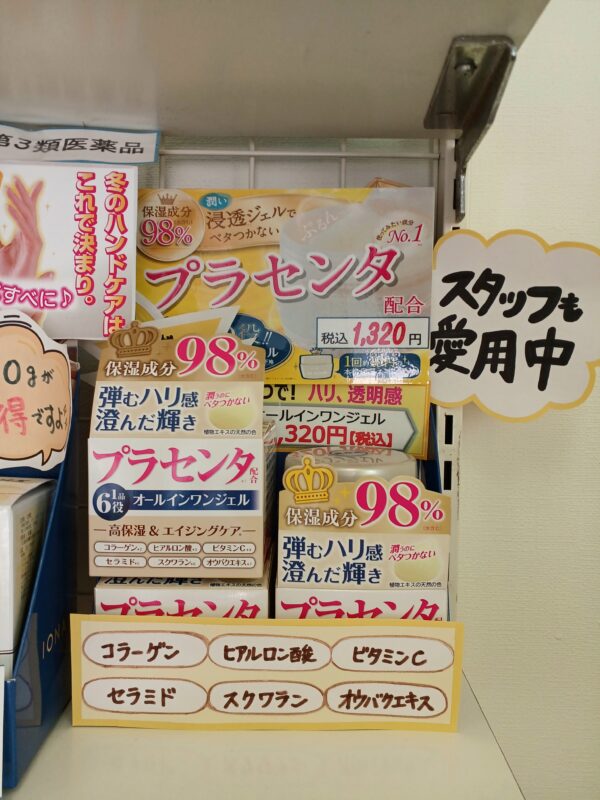 第3類医薬品
冬のハンドケアは
これで決まり。
すべに♪
0gが
得ですよ
保湿成分
98%
潤い
浸透ジェルで
ベタつかない
ぷるん
No.1
プラセンタ
配合
税込 1,320円
で! ハリ、透明感
オールインワンジェル
1,320円【税込】
スタッフも
愛用中
保湿成分 98%
弾むハリ感
澄んだ輝き
潤うのに
ベタつかない
植物エキスの天然の色
プラセンタ 配合
1品
6役
オールインワンジェル
高保湿&エイジングケア
コラーゲン ヒアルロン酸 ビタミンC
セラミド スクワラン オウバクエキス
保湿成分 98%
弾むハリ感
澄んだ輝き
潤うのに
ベタつかない
植物エキスの天然の色
澄んだ輝き
プラセンタ
プラセンタ
IONA
コラーゲン ヒアルロン酸 ビタミンC
セラミド スクワラン オウバクエキス